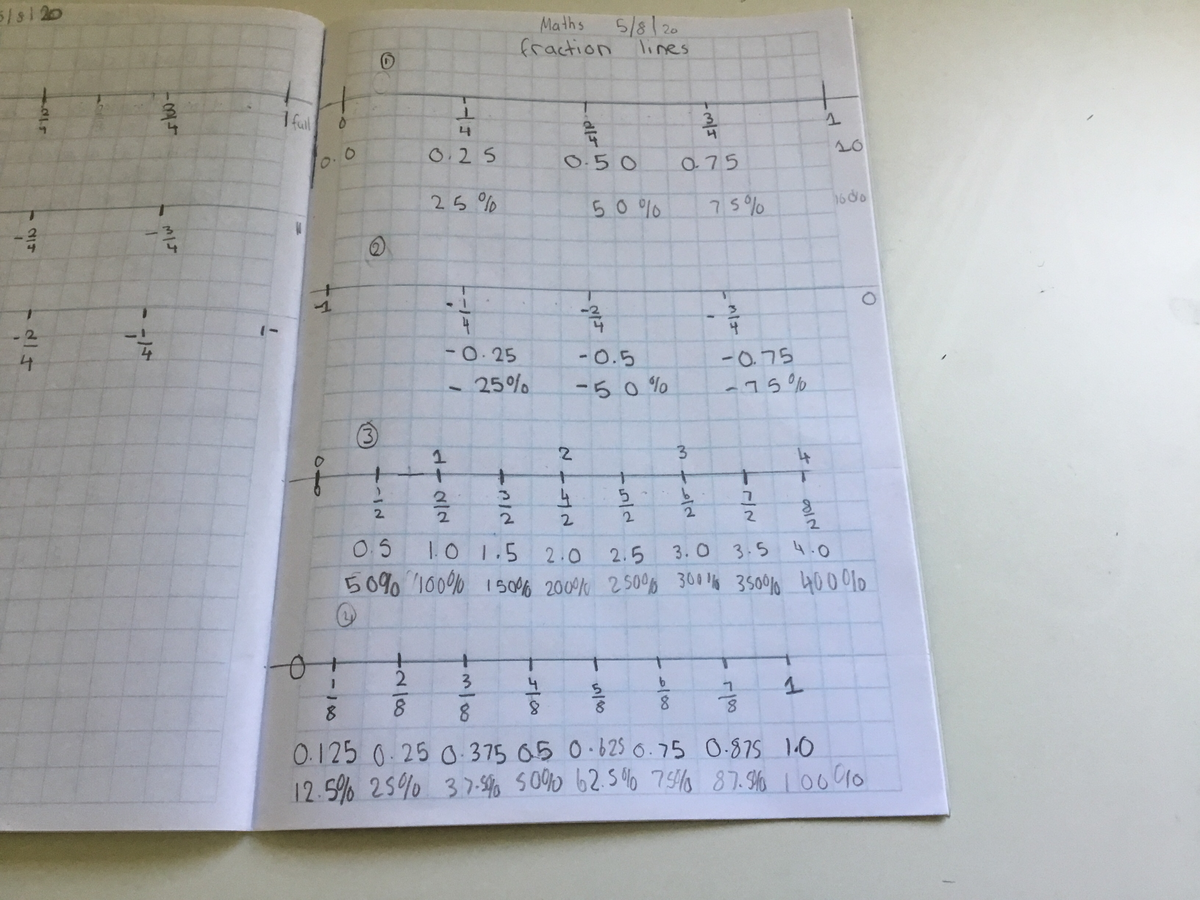 5/8/20
2/4 3/4 1 full
-2/4 -3/4
-2/4 -1/4 1-
Maths 5/8/20
fraction lines
①
0 1/4 2/4 3/4 1
0.0 0.25 0.50 0.75 1.0
25% 50% 75% 100%
②
-1 -1/4 -2/4 -3/4 0
-0.25 -0.5 -0.75
-25% -50% -75%
③
0 1 2 3 4
0 1/2 2/2 3/2 4/2 5/2 6/2 7/2 8/2
0.5 1.0 1.5 2.0 2.5 3.0 3.5 4.0
50% 100% 150% 200% 250% 300% 350% 400%
④
0 1/8 2/8 3/8 4/8 5/8 6/8 7/8 1
0.125 0.25 0.375 0.5 0.625 0.75 0.875 1.0
12.5% 25% 37.5% 50% 62.5% 75% 87.5% 100%